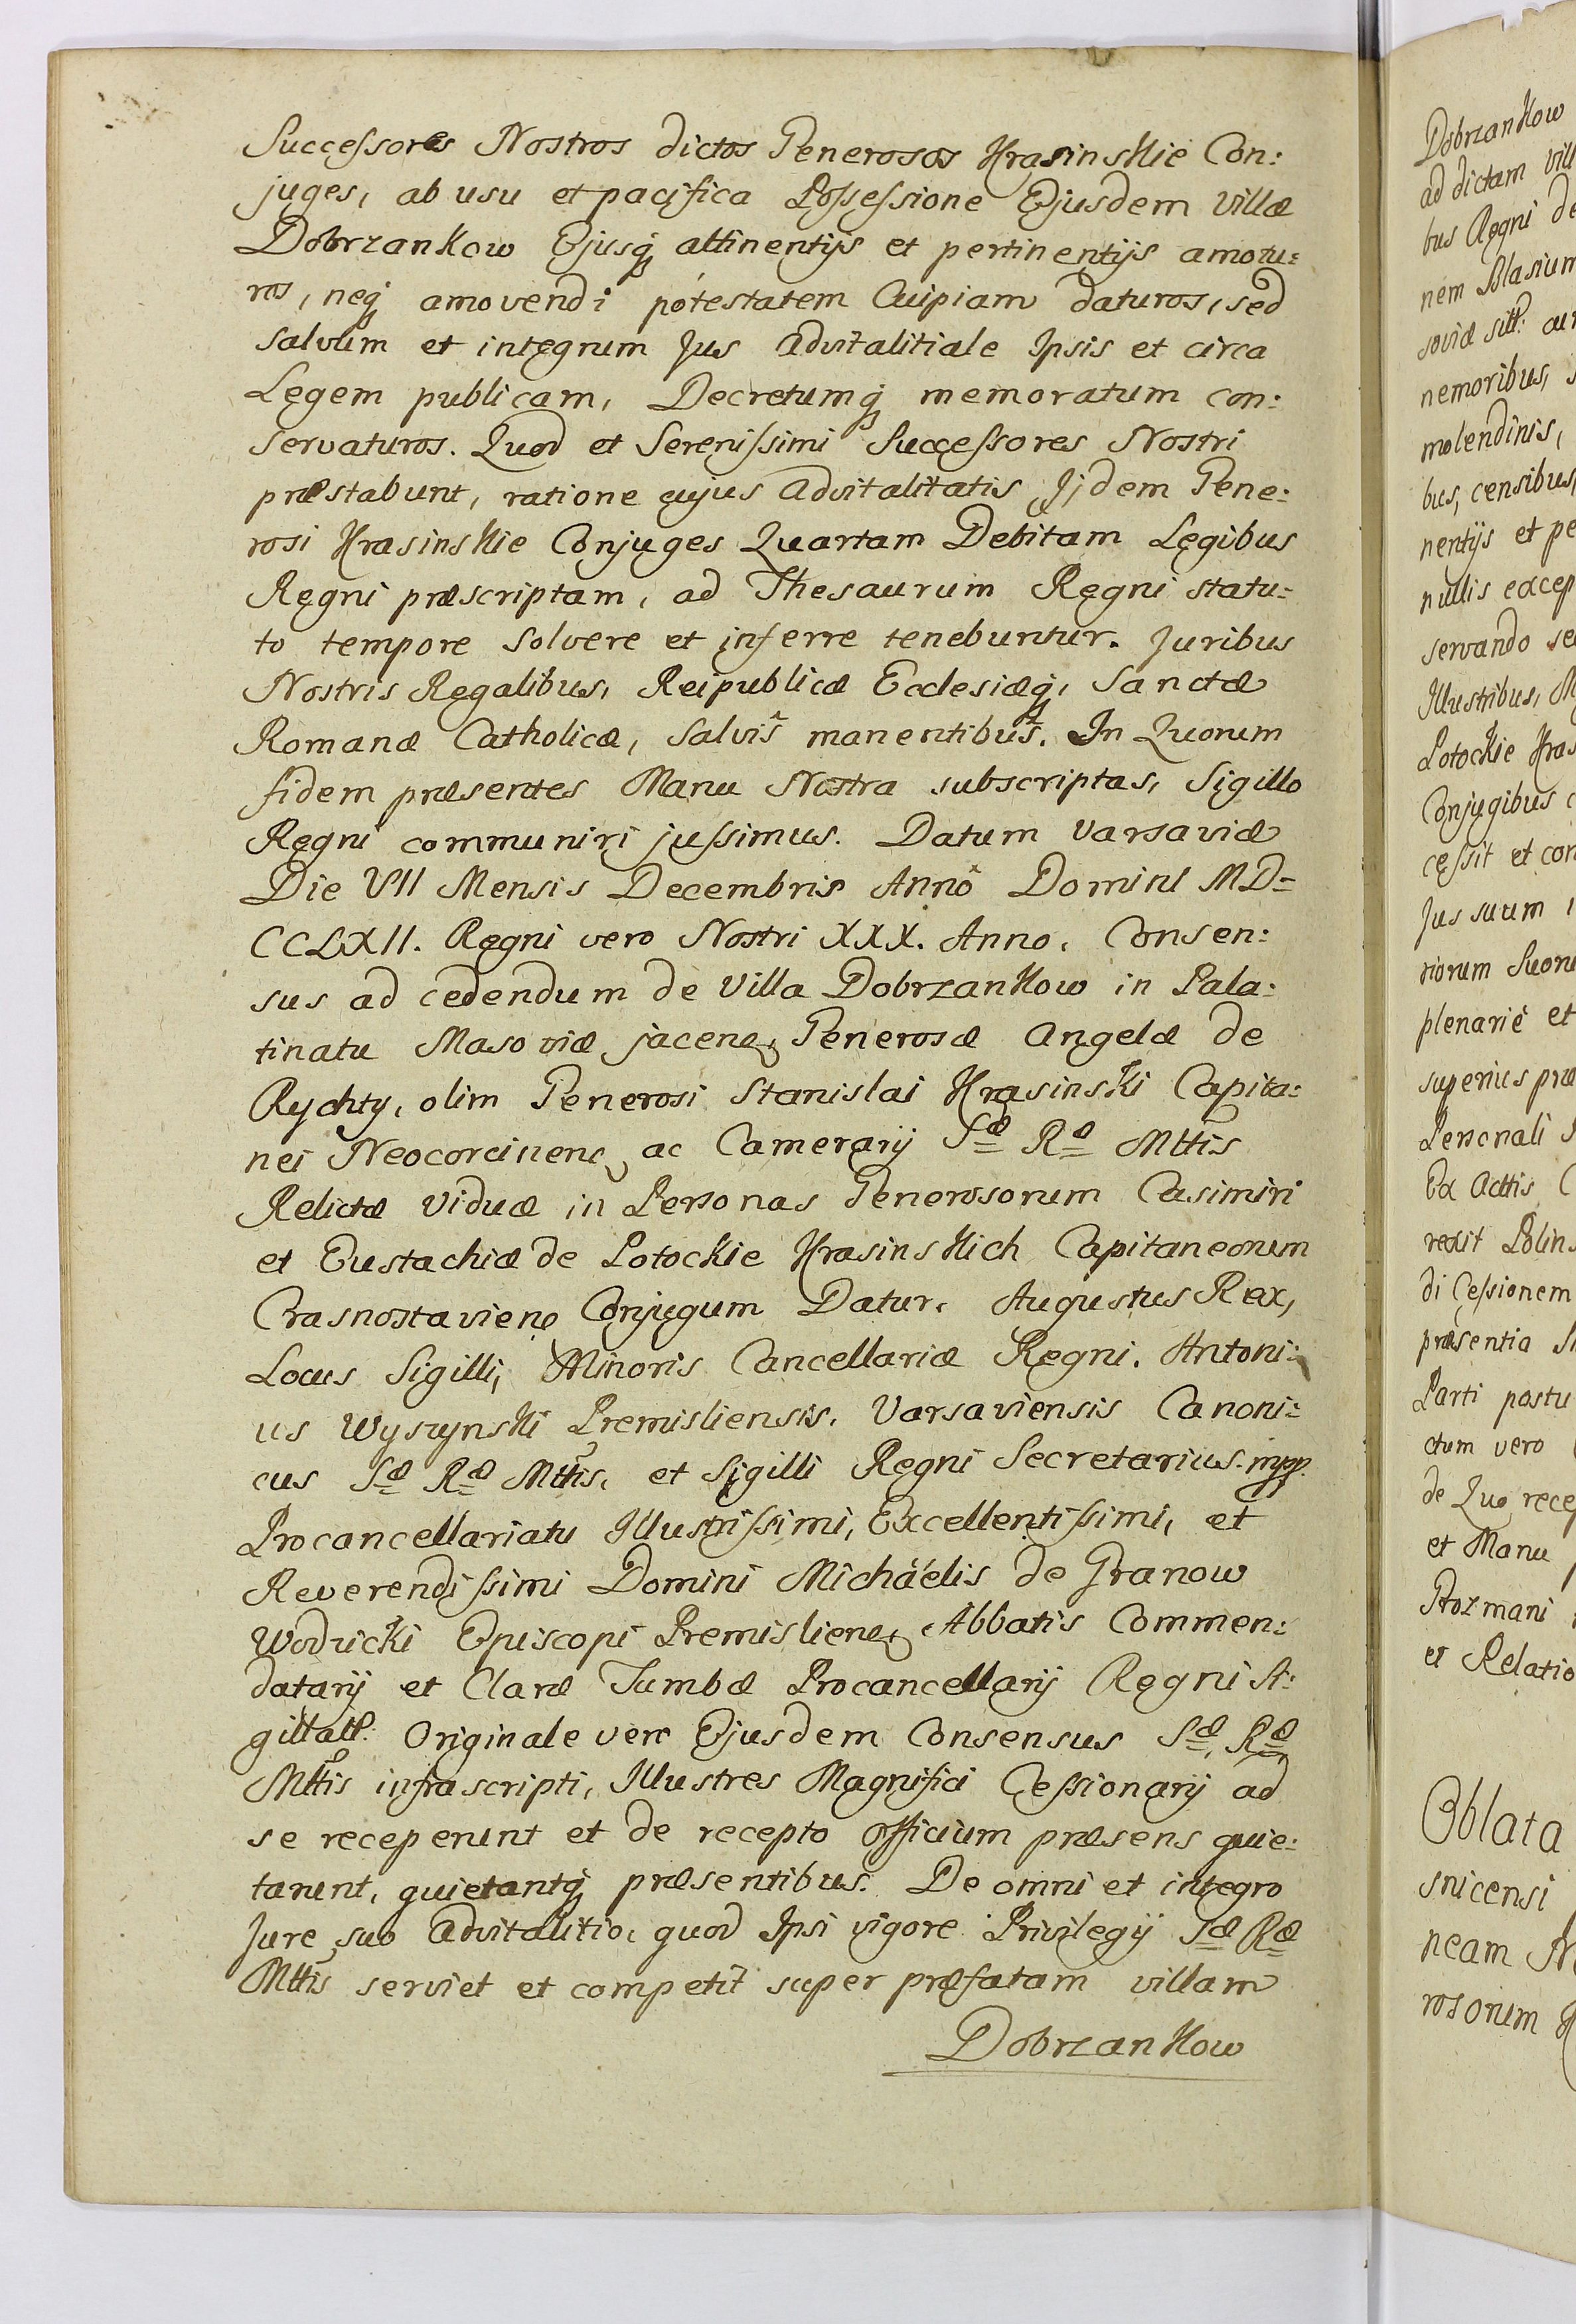 Successores Nostros dictos Generosos Krasinskie Con:
juges, ab usu et pacifica Possessione Ejusdem villæ
Dobrzankow Ejusq attinentijs et pertinentijs amotu:
ros, neq amovendi potestatem Cuipiam daturos, sed
salvum et integrum Jus advitalitiale Ipsis et circa
Legem publicam, Decretumq memoratum con:
servaturos. Quod et Serenissimi Successores Nostri
præstabunt, ratione cujus advitalitatis Ijdem Gene:
rosi Krasinskie Conjuges Quartam Debitam Legibus
Regni præscriptam, ad Thesaurum Regni statu:
to tempore solvere et inferre tenebuntur. Juribus
Nostris Regalibus, Reipublicæ Ecclesiæq, Sanctæ
Romanæ Catholicæ, salvis manentibus. In Quorum
fidem præsentes Manu Nostra subscriptas, Sigillo
Regni communiri jussimus. Datum Varsaviæ
Die VII Mensis Decembris Annô Domini MD=
CCLXII. Regni vero Nostri XXX. Anno. Consen:
sus ad cedendum de Villa Dobrzankow in Pala:
tinatu Masoviæ jacen, Generosæ Angelæ de
Rychty, olim Generosi Stanislai Krasinski Capita:
nei Neocorcinen, ac Camerarij Sæ Ræ Mttis
Relictæ Viduæ in Personas Generosorum Casimiri
et Eustachiæ de Potockie Krasinskich Capitaneorum
Crasnostavien Conjugum Datur. Augustus Rex,
Locus Sigilli, Minoris Cancellariæ Regni. Antoni:
us Wyszynski Premisliensis, Varsaviensis Canoni:
cus Sæ Ræ Mttis, et Sigilli Regni Secretarius. mpp.
Procancellariatu Illustrissimi, Excellentissimi, et
Reverendissimi Domini Michäelis de Granow
Wodzicki Episcopi Premislien, Abbatis Commen:
datarij et Claræ Tumbæ Procancellarij Regni si:
gillatt. Originale vero Ejusdem Consensus Sæ Ræ
Mttis infrascripti, Illustres Magnifici Cessionarij ad
se receperunt et de recepto officium præsens quie:
tarunt, quietantq præsentibus. De omni et integro
Jure suo advitalitio, quod Ipsi vigore Privilegij Sæ Ræ
Mttis serviet et competit super præfatam villam
Dobrzankow
Dobrzankow
ad dictam vill
bus Regni de
nem Blasium
soviæ sitt:
nemoribus,
molendinis,
bus, censibus,
nentijs et pe
nullis excep
servando se
Illustribus, M
Potockie Kras
Conjugibus c
cessit et con
Jus suum
riorum Suoru
plenariè et
superius præ
Personali
Ex Actis C
rexit Polins
di Cessionem
præsentia
Parti postu
ctum vero
de Quo recep
et Manu
Rozmani
et Relatio
Oblata
snicensi
neam
rosorum K